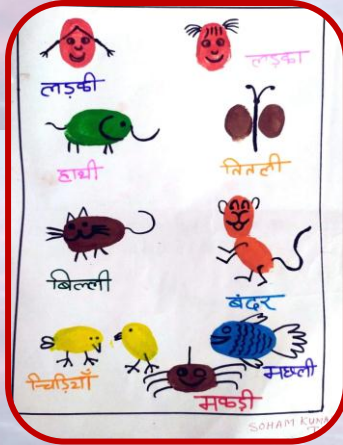 लड़की
लड़का
हाथी
तितली
बिल्ली
बंदर
चिड़ियाँ
मछली
मकड़ी
SOHAM